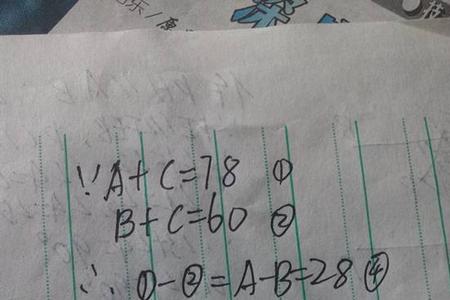 ∵A+C=78 ①
B+C=60 ②
∴ ①-②=A-B=28 ④